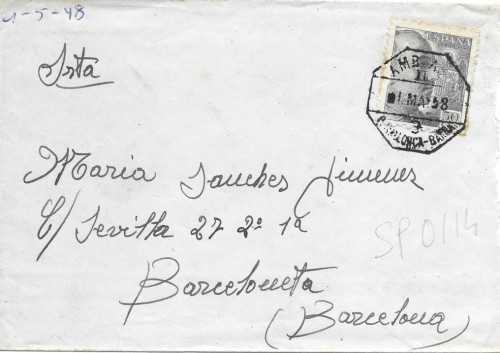 1-5-48
Srta
ESPAÑA
AMB.
01 MAY 48
50
3
Maria Sanches Jimenez
C/ Sevilla 27 2º 1ª
SP 0114
Barceloneta
(Barcelona)